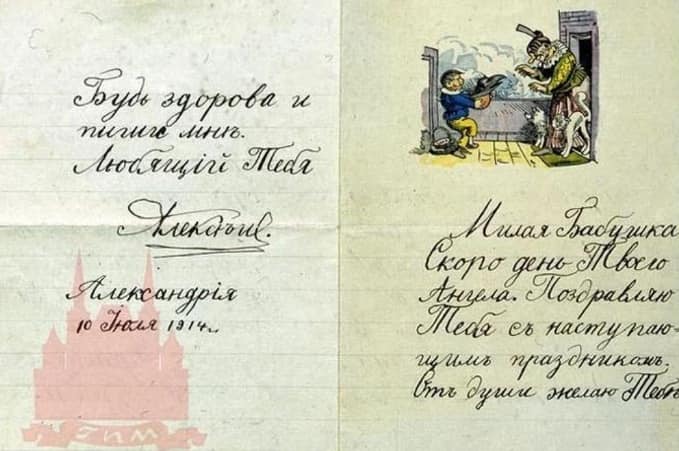 Будь здорова и
пиши мнѣ.
Любящій Тебя
Алексѣй.
Александрія
10 Іюля 1914 г.
ГИМ
Милая Бабушка
Скоро день Твоего
Ангела. Поздравляю
Тебя съ наступаю-
щимъ праздникомъ.
Отъ души желаю Тебѣ